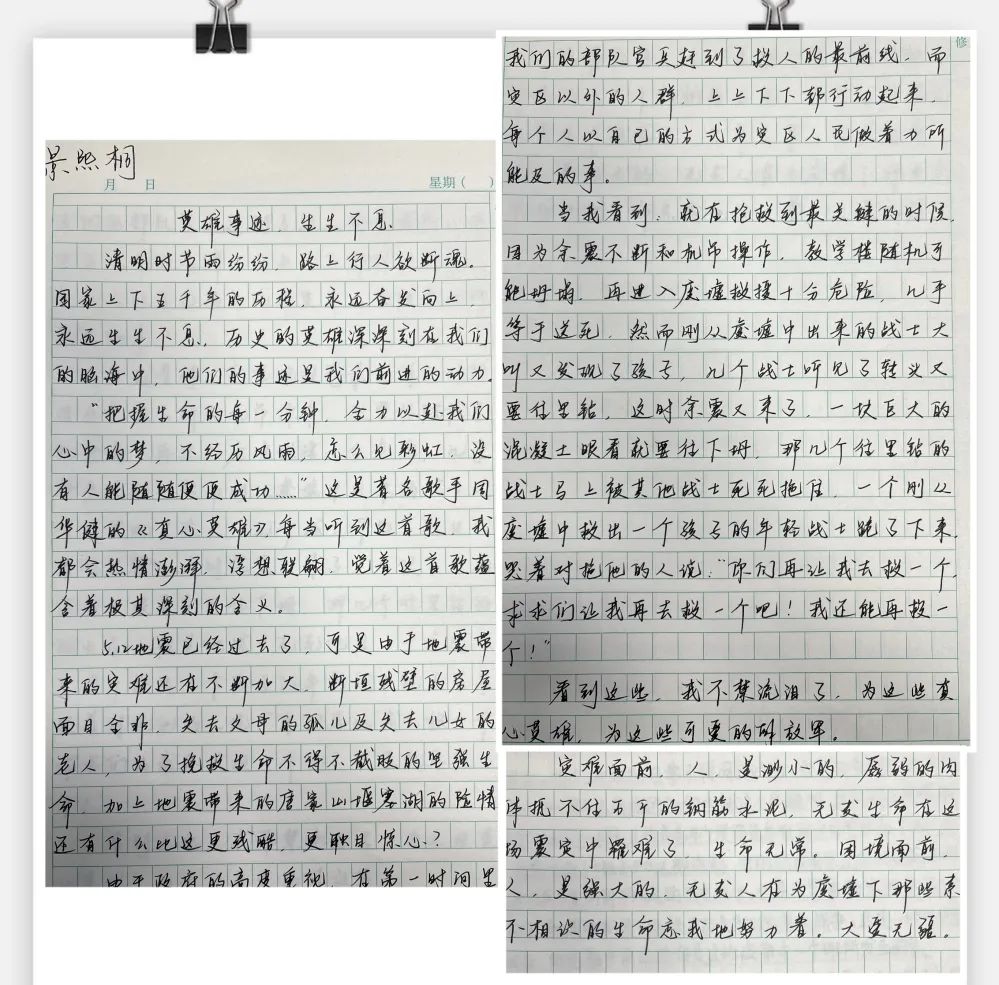 景熙桐
月 日 星期（ ）
英雄事迹，生生不息
清明时节雨纷纷，路上行人欲断魂。
国家上下五千年的历程，永远奋发向上，
永远生生不息，历史的英雄深深刻在我们
的脑海中，他们的事迹是我们前进的动力。
“把握生命的每一分钟，全力以赴我们
心中的梦，不经历风雨，怎么见彩虹，没
有人能随随便便成功……”这是著名歌手周
华健的《真心英雄》，每当听到这首歌，我
都会热情澎湃，浮想联翩，觉着这首歌蕴
含着极其深刻的含义。
5.12地震已经过去了，可是由于地震带
来的灾难还在不断加大，断垣残壁的房屋
面目全非，失去父母的孤儿及失去儿女的
老人，为了挽救生命不得不截肢的坚强生
命，加上地震带来的唐家山堰塞湖的险情
还有什么比这更残酷，更触目惊心？
由于政府的高度重视，在第一时间里
修
我们的部队官兵赶到了救人的最前线，而
灾区以外的人群，上上下下都行动起来，
每个人以自己的方式为灾区人民做着力所
能及的事。
当我看到，就在抢救到最关键的时候，
因为余震不断和机吊操作，教学楼随机可
能坍塌，再进入废墟救援十分危险，几乎
等于送死，然而刚从废墟中出来的战士大
叫又发现了孩子，几个战士听见了转义又
要往里钻，这时余震又来了，一块巨大的
混凝土眼看就要往下坍，那几个往里钻的
战士马上被其他战士死死拖住，一个刚从
废墟中救出一个孩子的年轻战士跪了下来，
哭着对拖他的人说：“你们再让我去救一个，
求求们让我再去救一个吧！我还能再救一
个！”
看到这些，我不禁流泪了，为这些真
心英雄，为这些可爱的解放军。
灾难面前，人，是渺小的，孱弱的肉
体抵不住万千的钢筋水泥，无数生命在这
场震灾中罹难了，生命无常。困境面前，
人，是强大的，无数人在为废墟下那些素
不相识的生命忘我地努力着。大爱无疆。